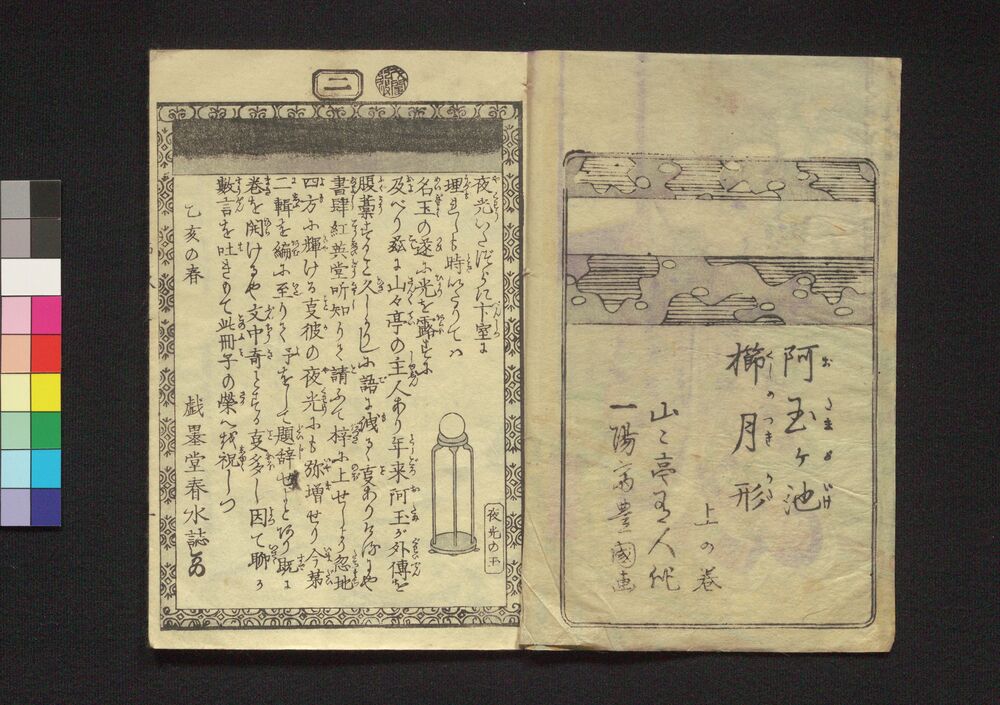 阿玉ヶ池
櫛月形
上の巻
山々亭有人作
一陽斎豊國画
二
夜光の玉
夜光いたづらに卞室に
埋もるも時いたりてハ
名玉の遂に光を露すに
及べり茲に山々亭の主人あり年来阿玉が外傳を
腹藁すること久しかりしに語に
書肆紅英堂所知りて請ふて梓に上せしより忽地
四方に輝ける事彼の夜光にも弥増せり今第
二輯を編に至りて予をして題辞せよとあり既に
巻を開けるや文中奇とする事多し因て聊か
數言を吐きもて此冊子の榮へを祝しつ
乙亥の春
戯墨堂春水誌